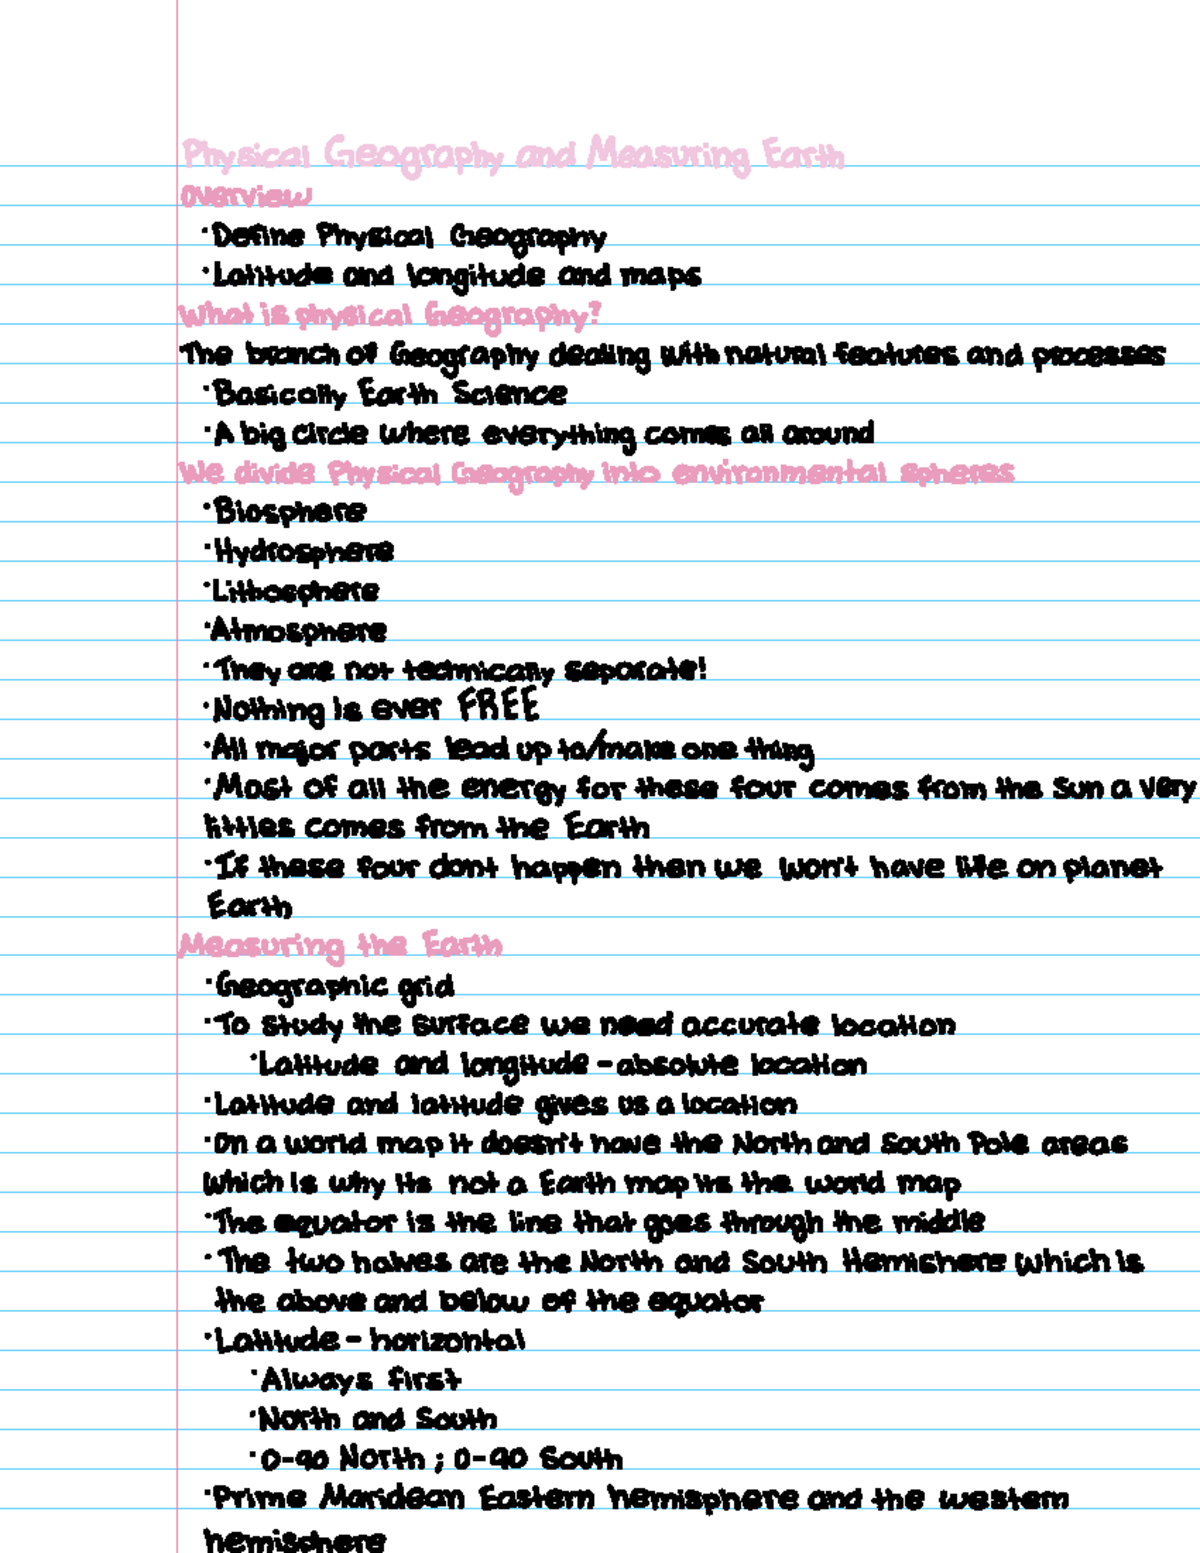 Physical Geography and Measuring Earth
Overview
·Define Physical Geography
·Latitude and longitude and maps
What is physical Geography?
The branch of Geography dealing with natural features and processes
·Basically Earth Science
·A big circle where everything comes all around
We divide Physical Geography into environmental spheres
·Biosphere
·Hydrosphere
·Lithosphere
·Atmosphere
·They are not technically separate!
·Nothing is ever FREE
·All major parts lead up to/make one thing
·Most of all the energy for these four comes from the Sun a very
littles comes from the Earth
·If these four dont happen then we won't have life on planet
Earth
Measuring the Earth
·Geographic grid
·To study the surface we need accurate location
·Latitude and longitude - absolute location
·Latitude and latitude gives us a location
·On a world map it doesn't have the North and South Pole areas
which is why its not a Earth map its the world map
·The equator is the line that goes through the middle
·The two halves are the North and South Hemishere which is
the above and below of the equator
·Latitude - horizontal
·Always first
·North and South
·0-90 North ; 0-90 South
·Prime Maridean Eastern hemisphere and the western
hemisphere